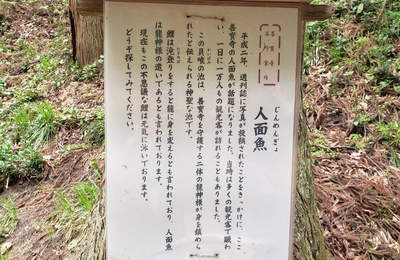 人面魚
じんめんぎょ
平成二年、週刊誌に写真が投稿されたことをきっかけに、ここ
善寳寺の人面魚が話題になりました。当時は多くの観光客で賑わ
い、一日に一万人もの観光客が訪れることもありました。
この貝喰の池は、善寳寺を守護する二体の龍神様が身を鎮めら
れたと伝えられる神聖な池です。
鯉は滝登りをすると龍に身を変えるとも言われており、人面魚
は龍神様の遣いであるとも言われております。
現在もこの不思議な鯉は元気に泳いでおります。
どうぞ探してみてください。